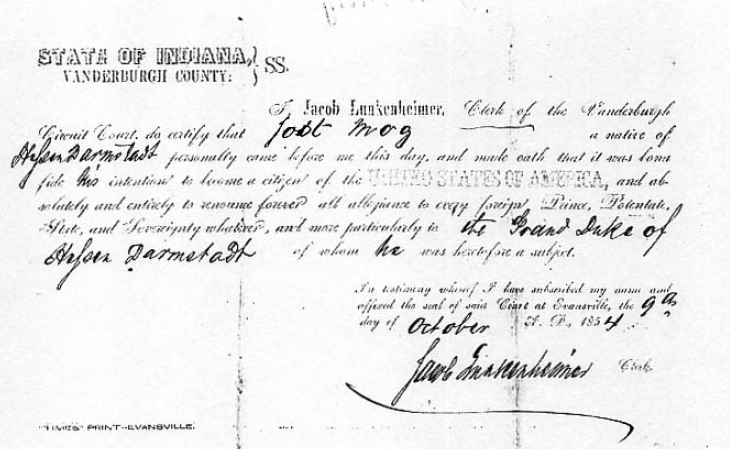 STATE OF INDIANA, } SS.
VANDERBURGH COUNTY:
I, Jacob Lunkenheimer, Clerk of the Vanderburgh
Circuit Court, do certify that Jost Mog a native of
Hessen Darmstadt personally came before me this day, and made oath that it was bona
fide his intention to become a citizen of the UNITED STATES OF AMERICA, and ab-
solutely and entirely to renounce forever all allegiance to every foreign Prince, Potentate,
State, and Sovereignty whatever, and more particularly to the Grand Duke of
Hessen Darmstadt of whom he was heretofore a subject.
In testimony whereof I have subscribed my name and
affixed the seal of said Court at Evansville, the 9th
day of October A. D., 1854.
Jacob Lunkenheimer Clerk.
"TIMES" PRINT--EVANSVILLE.